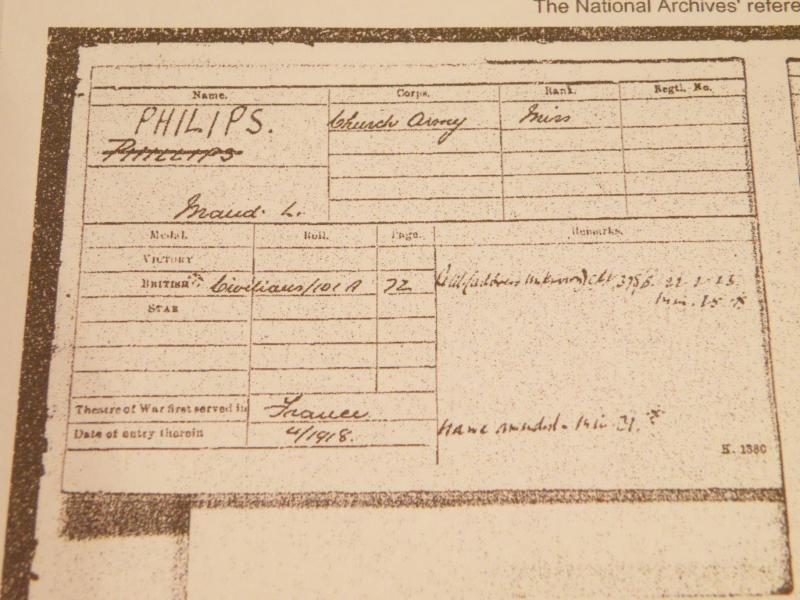 The National Archives' refere
Name. Corps. Rank. Regtl. No.
PHILIPS. Church Army Miss
PHILLIPS
Maud. L.
Medal. Roll. Page. Remarks.
VICTORY
BRITISH Civilians/101 A 72 (address unknown)
STAR
Theatre of War first served in France
Date of entry therein 4/1918.
Name amended - Min 21.
K. 1380